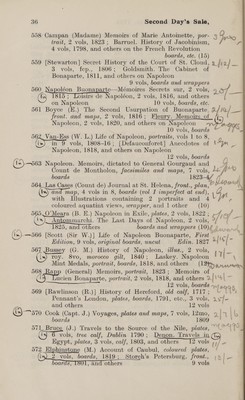 36 Second Day's Sale,
558 Campan (Madame) Memoirs of Marie Antoinette, por-
trait, 2 vols, 1823; Barruel, History of Jacobinism,
4 vols, 1798, and others on the French Revolution
boards, etc. (15)
559 [Stewarton] Secret History of the Court of St. Cloud,
3 vols, fcp., 1806; Goldsmith, The Cabinet of
Bonaparte, 1811, and others on Napoleon
9 vols, boards and wrappers
560 Napoléon Buonaparte—Mémoires Secrets sur, 2 vols,
1815; Loisirs de Napoléon, 2 vols, 1816, and others
on Napoleon 10 vols, boards, etc.
561 Boyce (E.) The Second Usurpation of Buonaparte
front. and maps, 2 vols, 1816; Fleury, Memoirs of
Napoleon, 2 vols, 1820, and others on Napoleon
10 vols, boards
562 Van-Ess (W. L.) Life of Napoleon, portraits, vols 1 to 8,
in 9 vols, 1808-16; [Defauconferet] Anecdotes of
Napoleon, 1818, and others on Napoleon
12 vols, boards
563 Napoleon. Memoirs, dictated to General Gourgaud and
Count de Montholon, facsimiles and maps, 7 vols,
boards 1823-4
564 Las Cases (Count de) Journal at St. Helena, front., plan,
and map, 4 vols in 8, boards (vol 1 imperfect at end),
with Illustrations containing 2 portraits and 4
coloured aquatint views, wrapper, and 1 other (10)
565 O'Meara (B. E.) Napoleon in Exile, plates, 2 vols, 1822;
Antommarchi, The Last Days of Napoleon, 2 vols,
1825, and others boards and wrappers (10)
566 [Scott (Sir W.)] Life of Napoleon Buonaparte, First
Edition, 9 vols, original boards, uncut Edin. 1827
567 Bussey (G. M.) History of Napoleon, illus., 2 vols,
roy. 8vo, morocco gilt, 1840; Laskey, Napoleon
Mint Medals, portrait, boards, 1818, and others
568 Rapp (General) Memoirs, portrait, 1823; Memoirs of
Lucien Bonaparte, portrait, 2 vols, 1818, and others
12 vols, boards
569 [Rawlinson (R.)] History of Hereford, old calf, 1717;
Pennant's London, plates, boards, 1791, etc., 3 vols,
and others 12 vols
570 Cook (Capt. J.) Voyages, plates and maps, 7 vols, 12mo,
boards 1809
571 Bruce (J.) Travels to the Source of the Nile, plates,
6 vols, tree calf, Dublin 1790; Denon, Travels in
Egypt, plates, 3 vols, calf, 1803, and others 12 vols
572 Elphinstone (M.) Account of Caubul, coloured plates,
2 vols, boards, 1819; Storch's Petersburg, front.,
boards, 1801, and others 9 vols